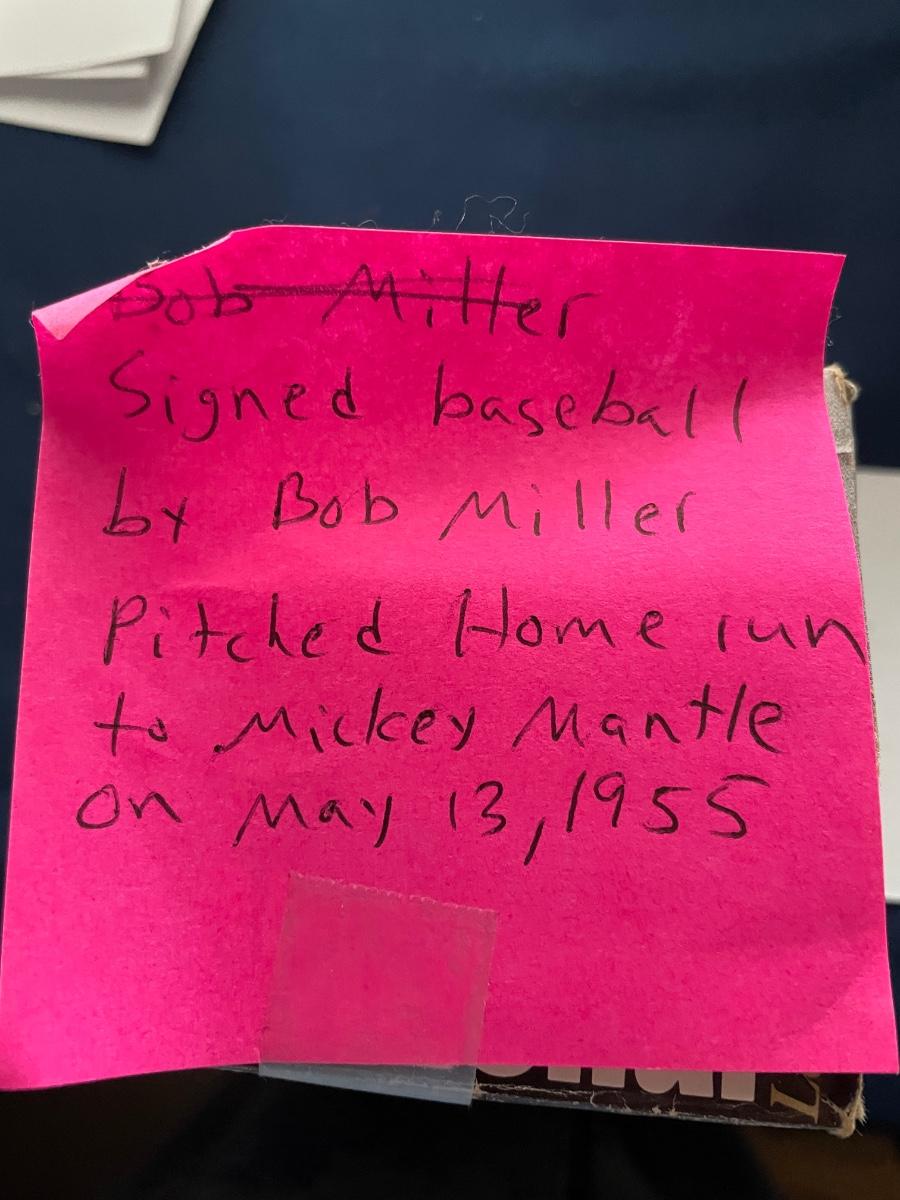 Bob Miller
Signed baseball
by Bob Miller
Pitched Home run
to Mickey Mantle
on May 13, 1955